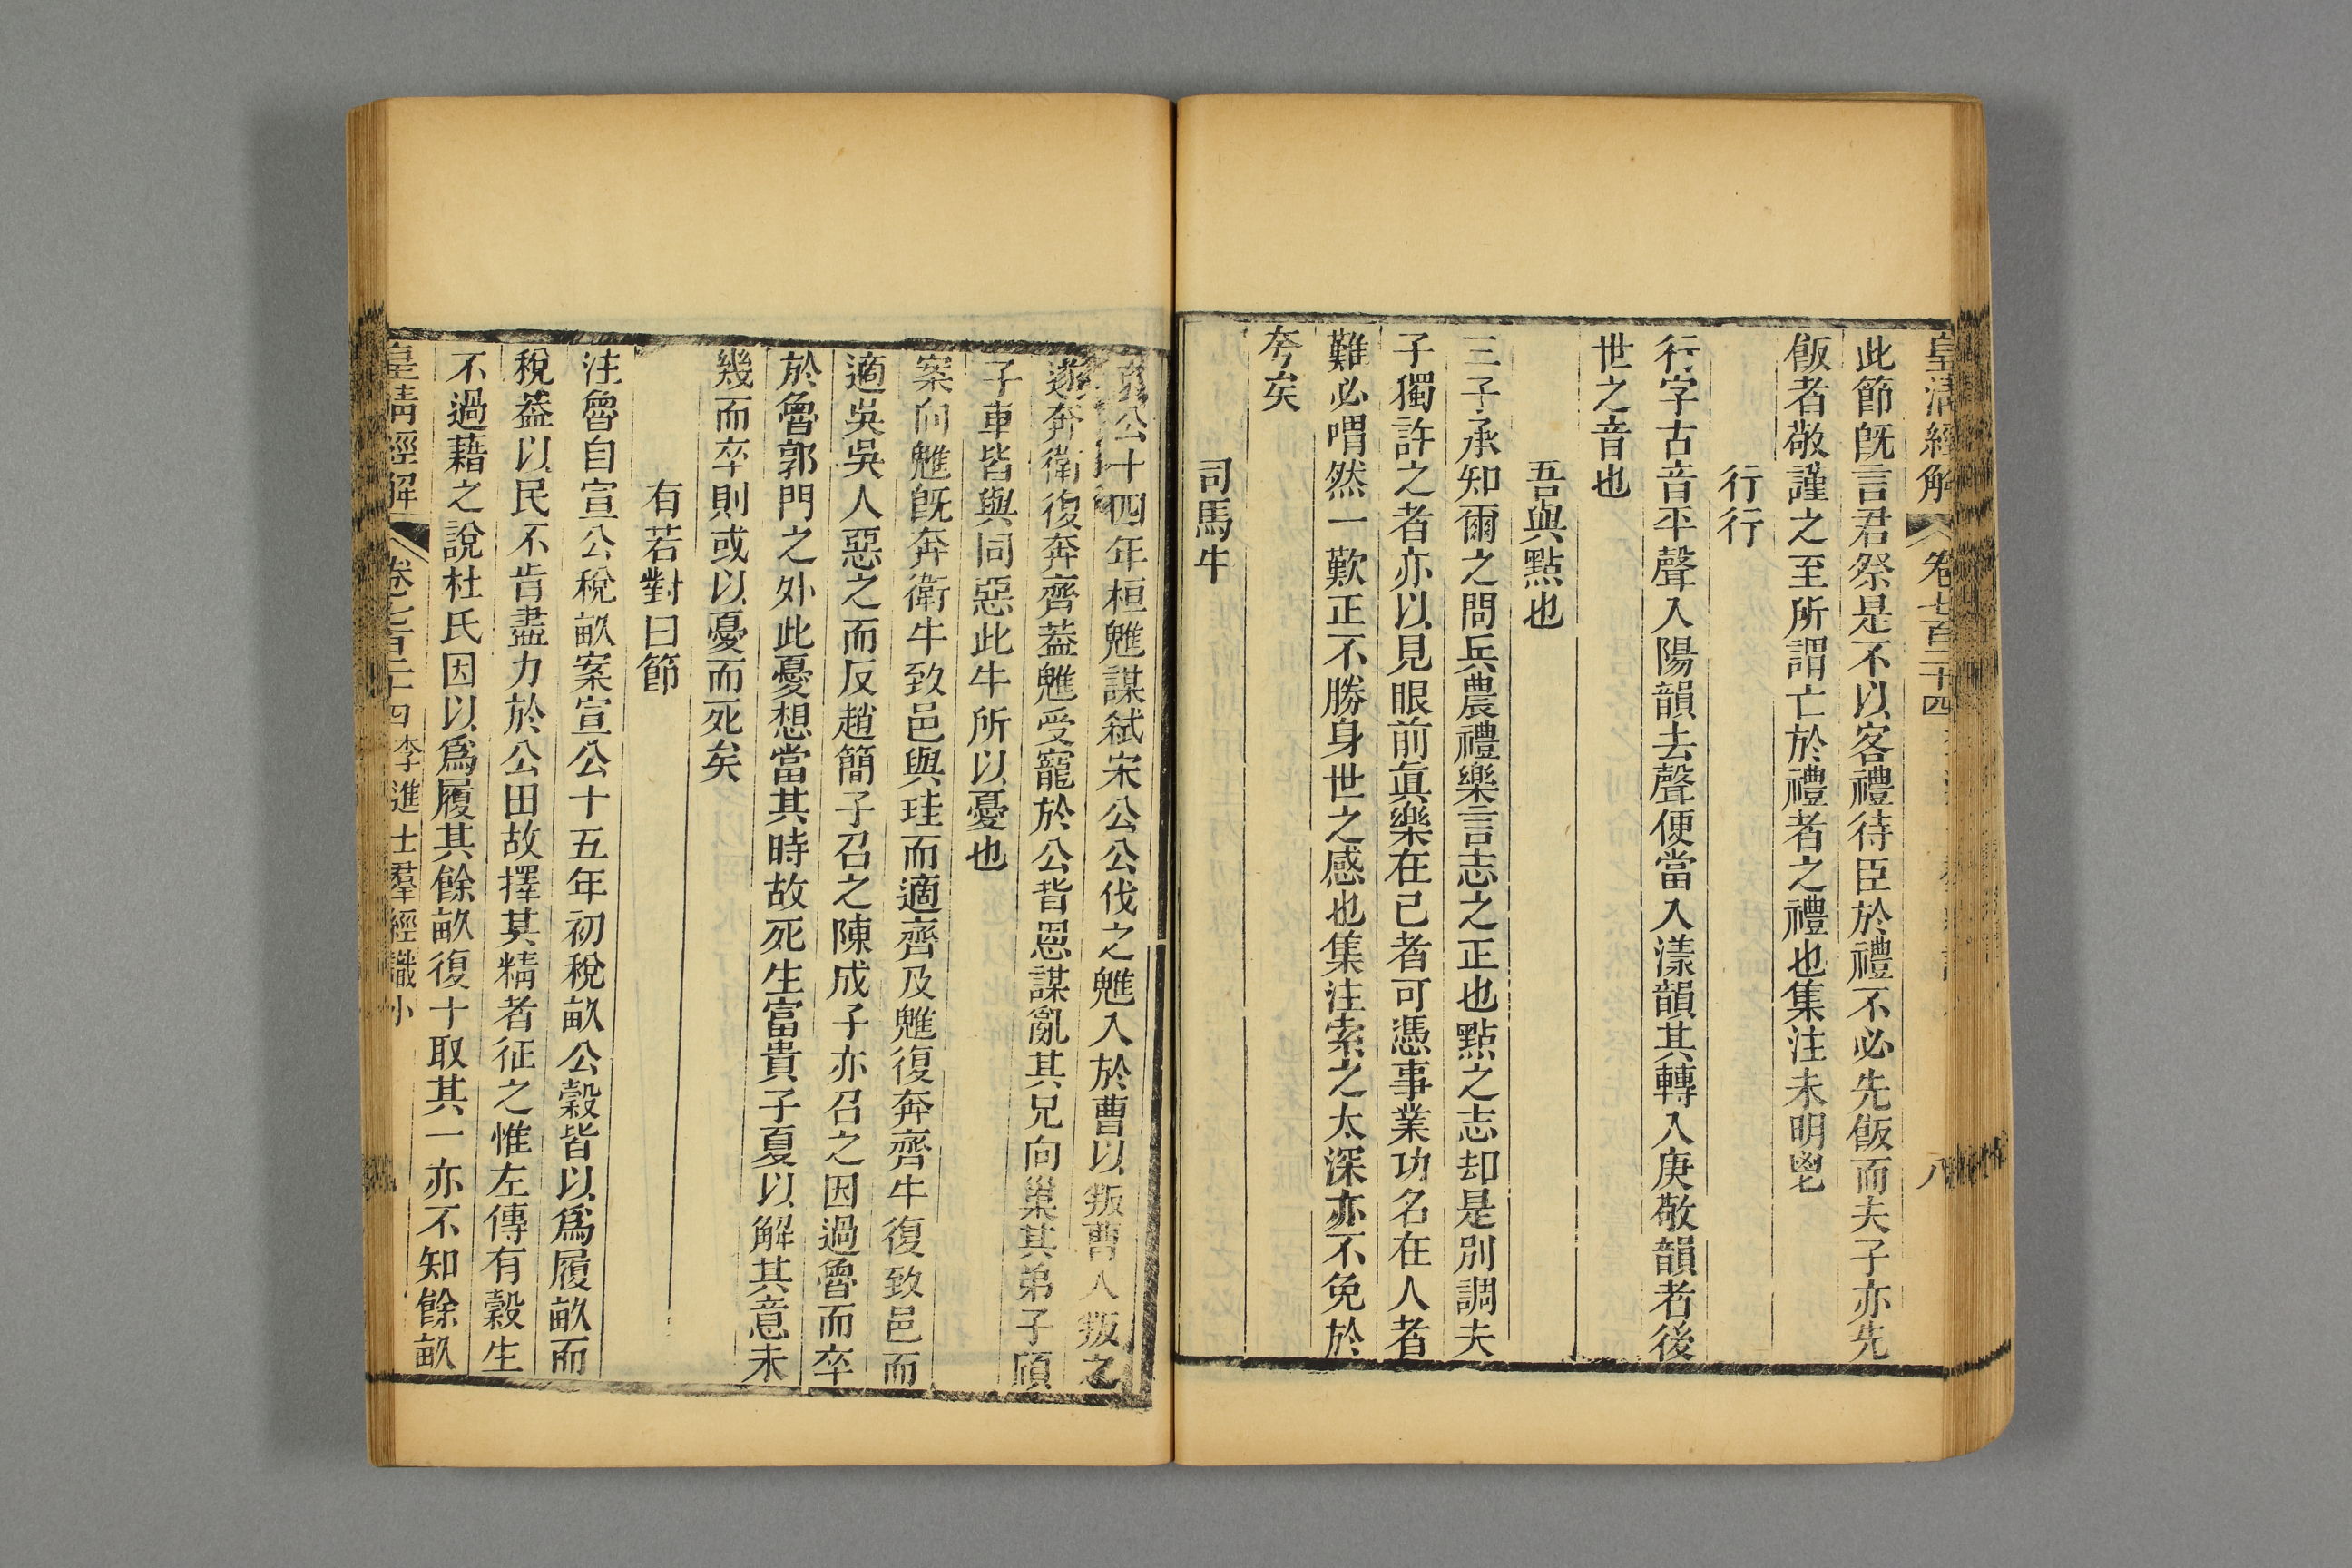 皇清經解 卷七百二十四 八
此節旣言君祭是不以客禮待臣於禮不必先飯而夫子亦先
飯者敬謹之至所謂亡於禮者之禮也集注未明鬯
行行
行字古音平聲入陽韻去聲便當入漾韻其轉入庚敬韻者後
世之音也
吾與點也
三子承知爾之問兵農禮樂言志之正也點之志却是別調夫
子獨許之者亦以見眼前眞樂在己者可憑事業功名在人者
難必喟然一歎正不勝身世之感也集注索之太深亦不免於
夸矣
司馬牛
哀公十四年桓魋謀弑宋公公伐之魋入於曹以叛曹人叛之
遂奔衛復奔齊葢魋受寵於公背恩謀亂其兄向巢其弟子頎
子車皆與同惡此牛所以憂也
案向魋旣奔衛牛致邑與珪而適齊及魋復奔齊牛復致邑而
適吳吳人惡之而反趙簡子召之陳成子亦召之因過魯而卒
於魯郭門之外此憂想當其時故死生富貴子夏以解其意未
幾而卒則或以憂而死矣
有若對曰節
注魯自宣公稅畝案宣公十五年初稅畝公穀皆以爲履畝而
稅葢以民不肯盡力於公田故擇其精者征之惟左傳有穀生
不過藉之說杜氏因以爲履其餘畝復十取其一亦不知餘畝
皇清經解 卷七百二十四 李進士羣經識小